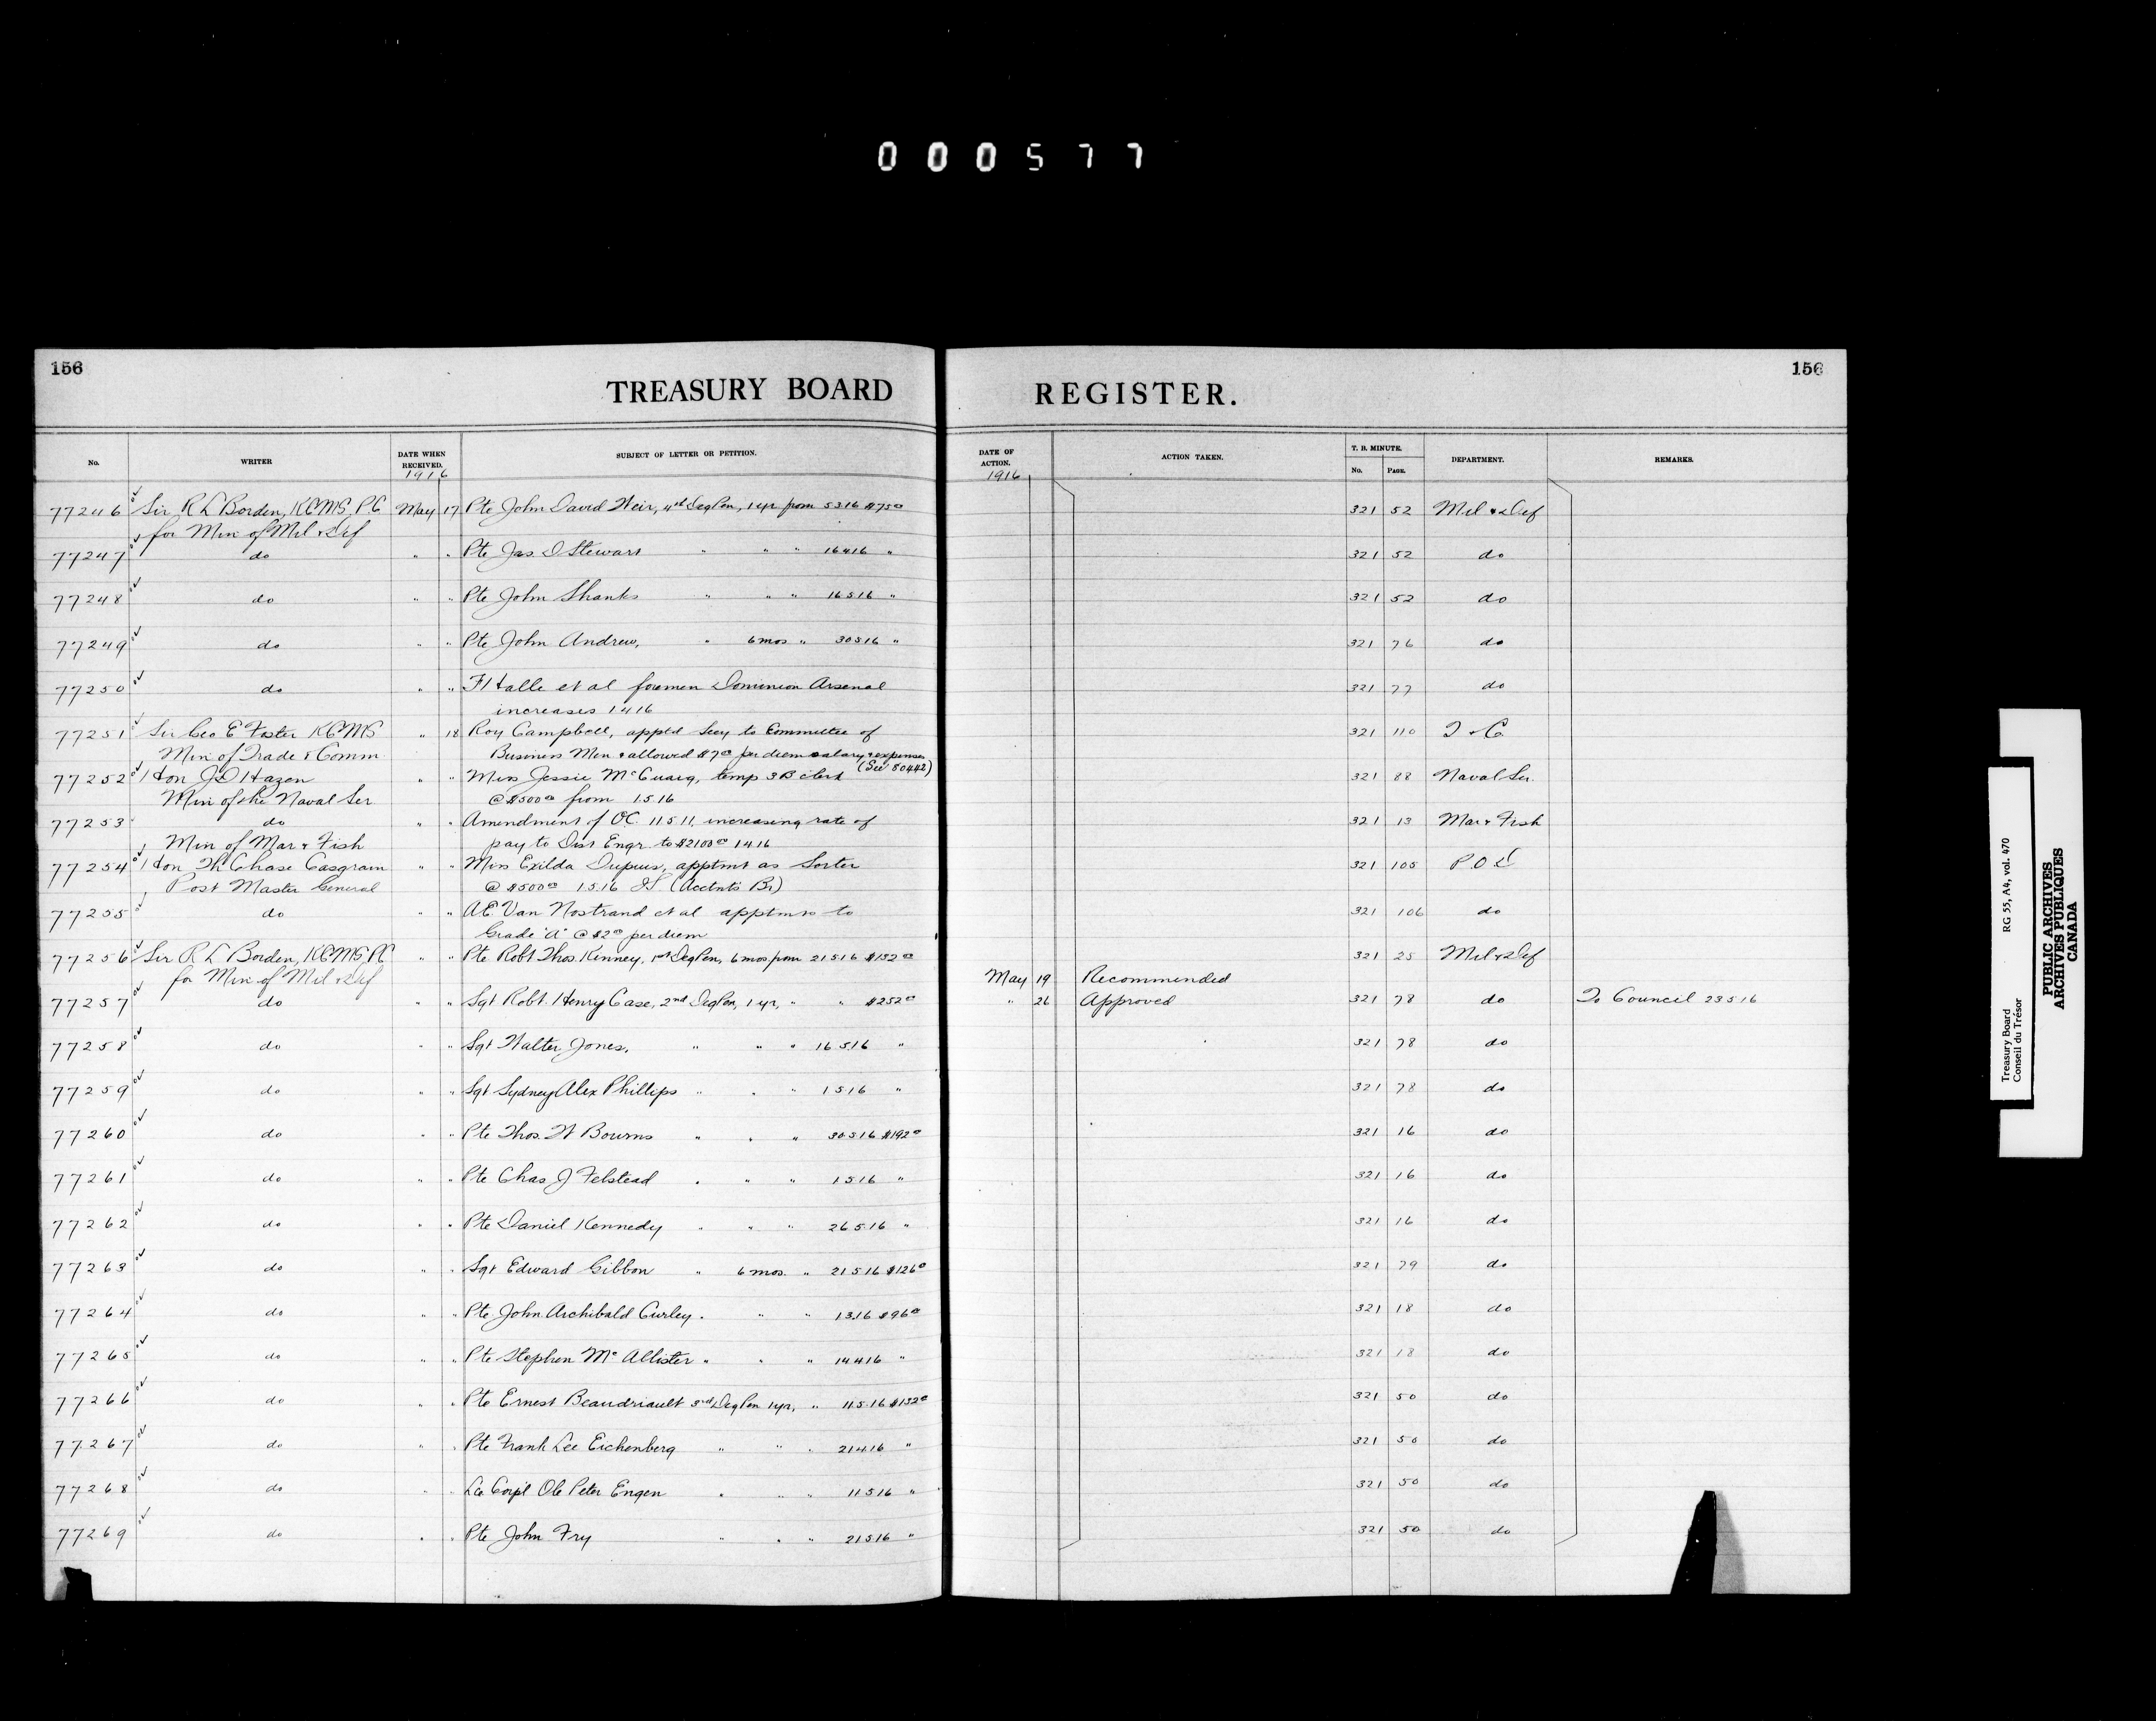 000577
156
TREASURY BOARD
No. WRITER DATE WHEN RECEIVED. SUBJECT OF LETTER OR PETITION.
1916
77246 Sir R L Borden, KCMG, PC May 17 Pte John David Weir, 4th Deg Pen, 1 yr from 5.3.16 $75.00
for Min of Mil & Def
77247 do " " Pte Jas. D Stewart " " " 16.4.16 "
77248 do " " Pte John Shanks " " " 16.5.16 "
77249 do " " Pte John Andrew, " 6 mos " 30.5.16 "
77250 do " " F Halle et al foremen Dominion Arsenal
increases 1.4.16
77251 Sir Geo E Foster KCMG " 18 Roy Campbell, apptd Secy to Committee of
Min of Trade & Comm Business Men & allowed $7.00 per diem salary & expenses
(See 80442)
77252 Hon J D Hazen " " Miss Jessie McCuaig, temp 3B clerk
Min of the Naval Ser @ $500.00 from 1.5.16
77253 do " " Amendment of OC. 11.5.11, increasing rate of
Min of Mar & Fish pay to Dist Engr to $2100.00 1.4.16
77254 Hon Th Chase Casgrain " " Miss Exilda Dupuis, apptmt as Sorter
Post Master General @ $500.00 1.5.16 (Accnts Br)
77255 do " " A.E. Van Nostrand et al apptmts to
Grade "A" @ $2.00 per diem
77256 Sir R L Borden, KCMG, PC " " Pte Robt Thos. Kinney, 1st Deg Pen, 6 mos from 21.5.16 $132.00
for Min of Mil & Def
77257 do " " Sgt Robt. Henry Case, 2nd Deg Pen, 1 yr, " " $252.00
77258 do " " Sgt Walter Jones, " " " 16.5.16 "
77259 do " " Sgt Sydney Alex Phillips " " " 1.5.16 "
77260 do " " Pte Thos. W Bourns " " " 30.5.16 $192.00
77261 do " " Pte Chas J Felstead " " " 1.5.16 "
77262 do " " Pte Daniel Kennedy " " " 26.5.16 "
77263 do " " Sgt Edward Gibbon " 6 mos. " 21.5.16 $126.00
77264 do " " Pte John Archibald Curley " " " 1.3.16 $96.00
77265 do " " Pte Stephen McAllister " " " 14.4.16 "
77266 do " " Pte Ernest Beaudriault 3rd Deg Pen 1 yr, " 11.5.16 $132.00
77267 do " " Pte Frank Lee Eichenberg " " " 21.4.16 "
77268 do " " Lce Corpl Ole Peter Engen " " " 11.5.16 "
77269 do " " Pte John Fry " " " 21.5.16 "
156
REGISTER.
DATE OF ACTION. ACTION TAKEN. T. B. MINUTE. DEPARTMENT. REMARKS.
No. PAGE.
1916
321 52 Mil & Def
321 52 do
321 52 do
321 76 do
321 77 do
321 110 T & C
321 88 Naval Ser.
321 13 Mar & Fish
321 105 P O D
321 106 do
321 25 Mil & Def
May 19 Recommended
" 26 Approved 321 78 do To Council 23.5.16
321 78 do
321 78 do
321 16 do
321 16 do
321 16 do
321 79 do
321 18 do
321 18 do
321 50 do
321 50 do
321 50 do
321 50 do
Treasury Board RG 55, A4, vol. 470
Conseil du Trésor
PUBLIC ARCHIVES
ARCHIVES PUBLIQUES
CANADA